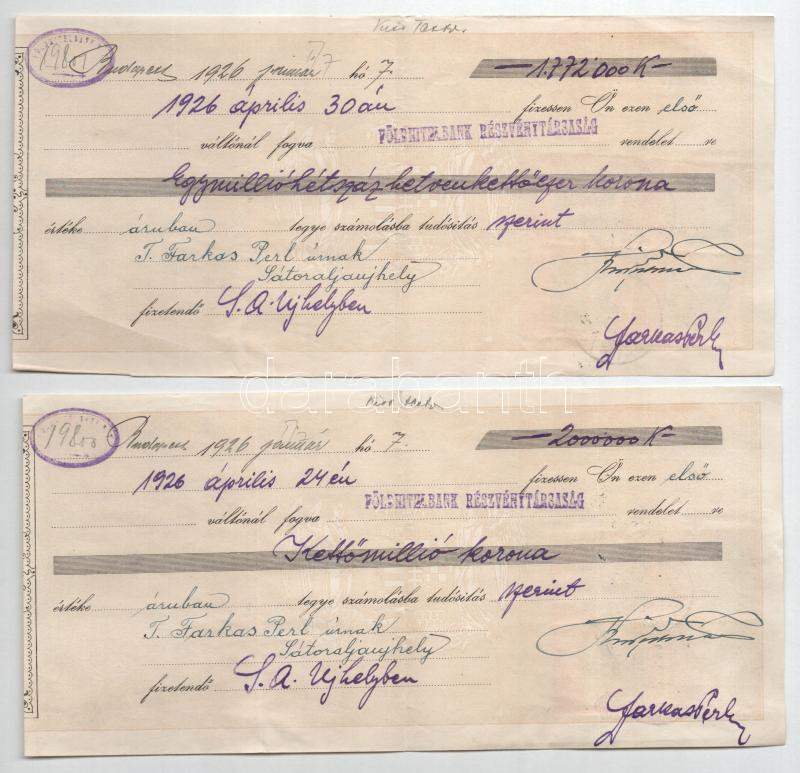 19801
Budapest 1926 január hó 7. 1.772000 K
1926 április 30án fizessen Ön ezen első
váltónál fogva FÖLDHITELBANK RÉSZVÉNYTÁRSASÁG rendelet re
Egymillióhétszázhetvenkettőezer korona
értéke áruban tegye számolásba tudósitás szerint
T. Farkas Perl úrnak
Sátoraljaujhely
fizetendő S. A. Ujhelyben
Farkas Perl
darabanth
19800
Budapest 1926 január hó 7. 2000000 K
1926 április 24én fizessen Ön ezen első
váltónál fogva FÖLDHITELBANK RÉSZVÉNYTÁRSASÁG rendelet re
Kettőmillió korona
értéke áruban tegye számolásba tudósitás szerint
T. Farkas Perl úrnak
Sátoraljaujhely
fizetendő S. A. Ujhelyben
Farkas Perl